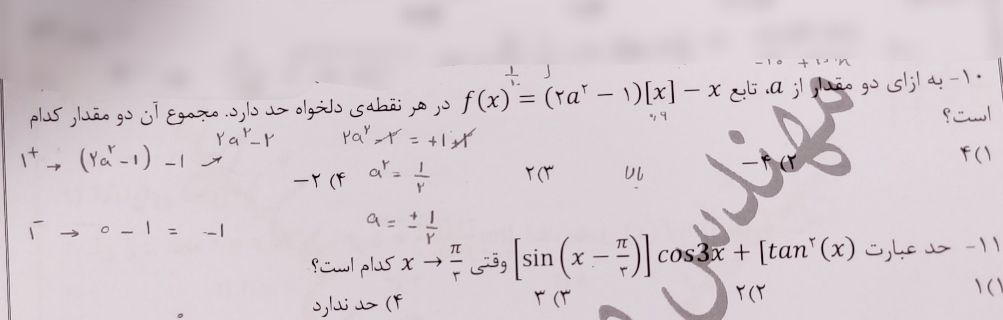 ۱۰- به ازای دو مقدار از a، تابع f(x) = (۲a² − ۱)[x] − x در هر نقطه‌ی دلخواه حد دارد. مجموع آن دو مقدار کدام
است؟
۱) ۴ ۲) ۴− ۳) ۲ ۴) ۲−
۱⁺ → (۲a²−۱) −۱ → ۲a²−۲
۲a²−۲ = +۱−۲
a² = ۱/۲
a = ± ۱/۲
۱⁻ → ۰ − ۱ = −۱
بالا
۱۱- حد عبارت [sin(x − π/۲)] cos3x + [tan²(x) وقتی x → π/۲ کدام است؟
۱) ۱ ۲) ۲ ۳) ۳ ۴) حد ندارد
مهندس